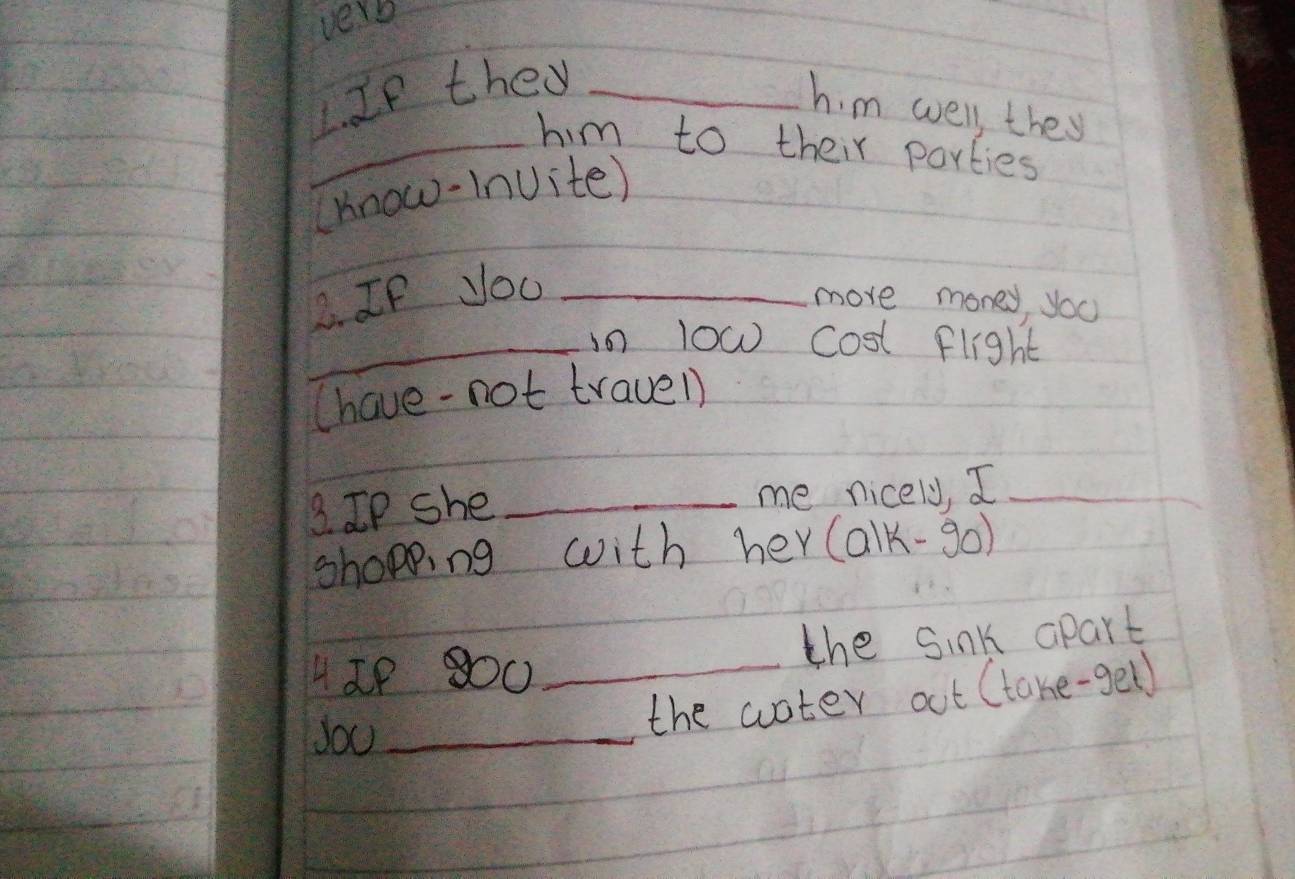 verb
1. If they ________ him well, they
________ him to their parties
(know-invite)
2. If you ________ more money, you
________ in low cost flight
(have-not travel)
3. If she ________ me nicely, I ________
shopping with her (alk-go)
4 If you ________ the sink apart
you ________ the water out (take-get)